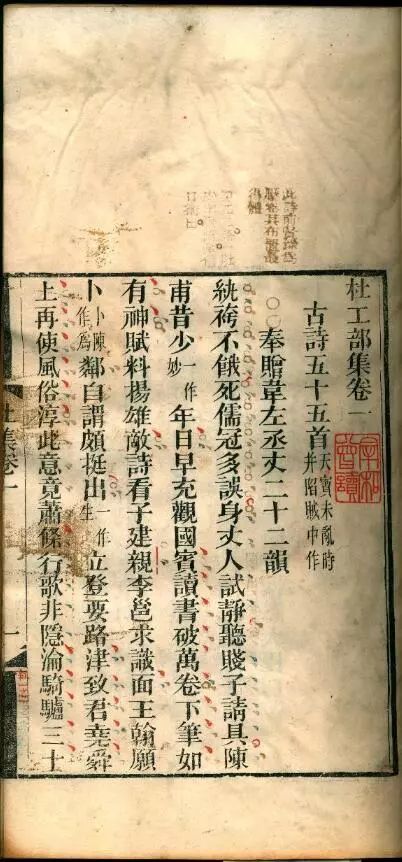 杜工部集卷一
古詩五十五首天寶未亂時并陷賊中作
奉贈韋左丞丈二十二韻
紈袴不餓死儒冠多誤身丈人試靜聽賤子請具陳
甫昔少一作妙年日早充觀國賓讀書破萬卷下筆如
有神賦料揚雄敵詩看子建親李邕求識面王翰願
卜卜陳作爲鄰自謂頗挺出一作生立登要路津致君堯舜
上再使風俗淳此意竟蕭條行歌非隱淪騎驢三十
杜集卷一
一